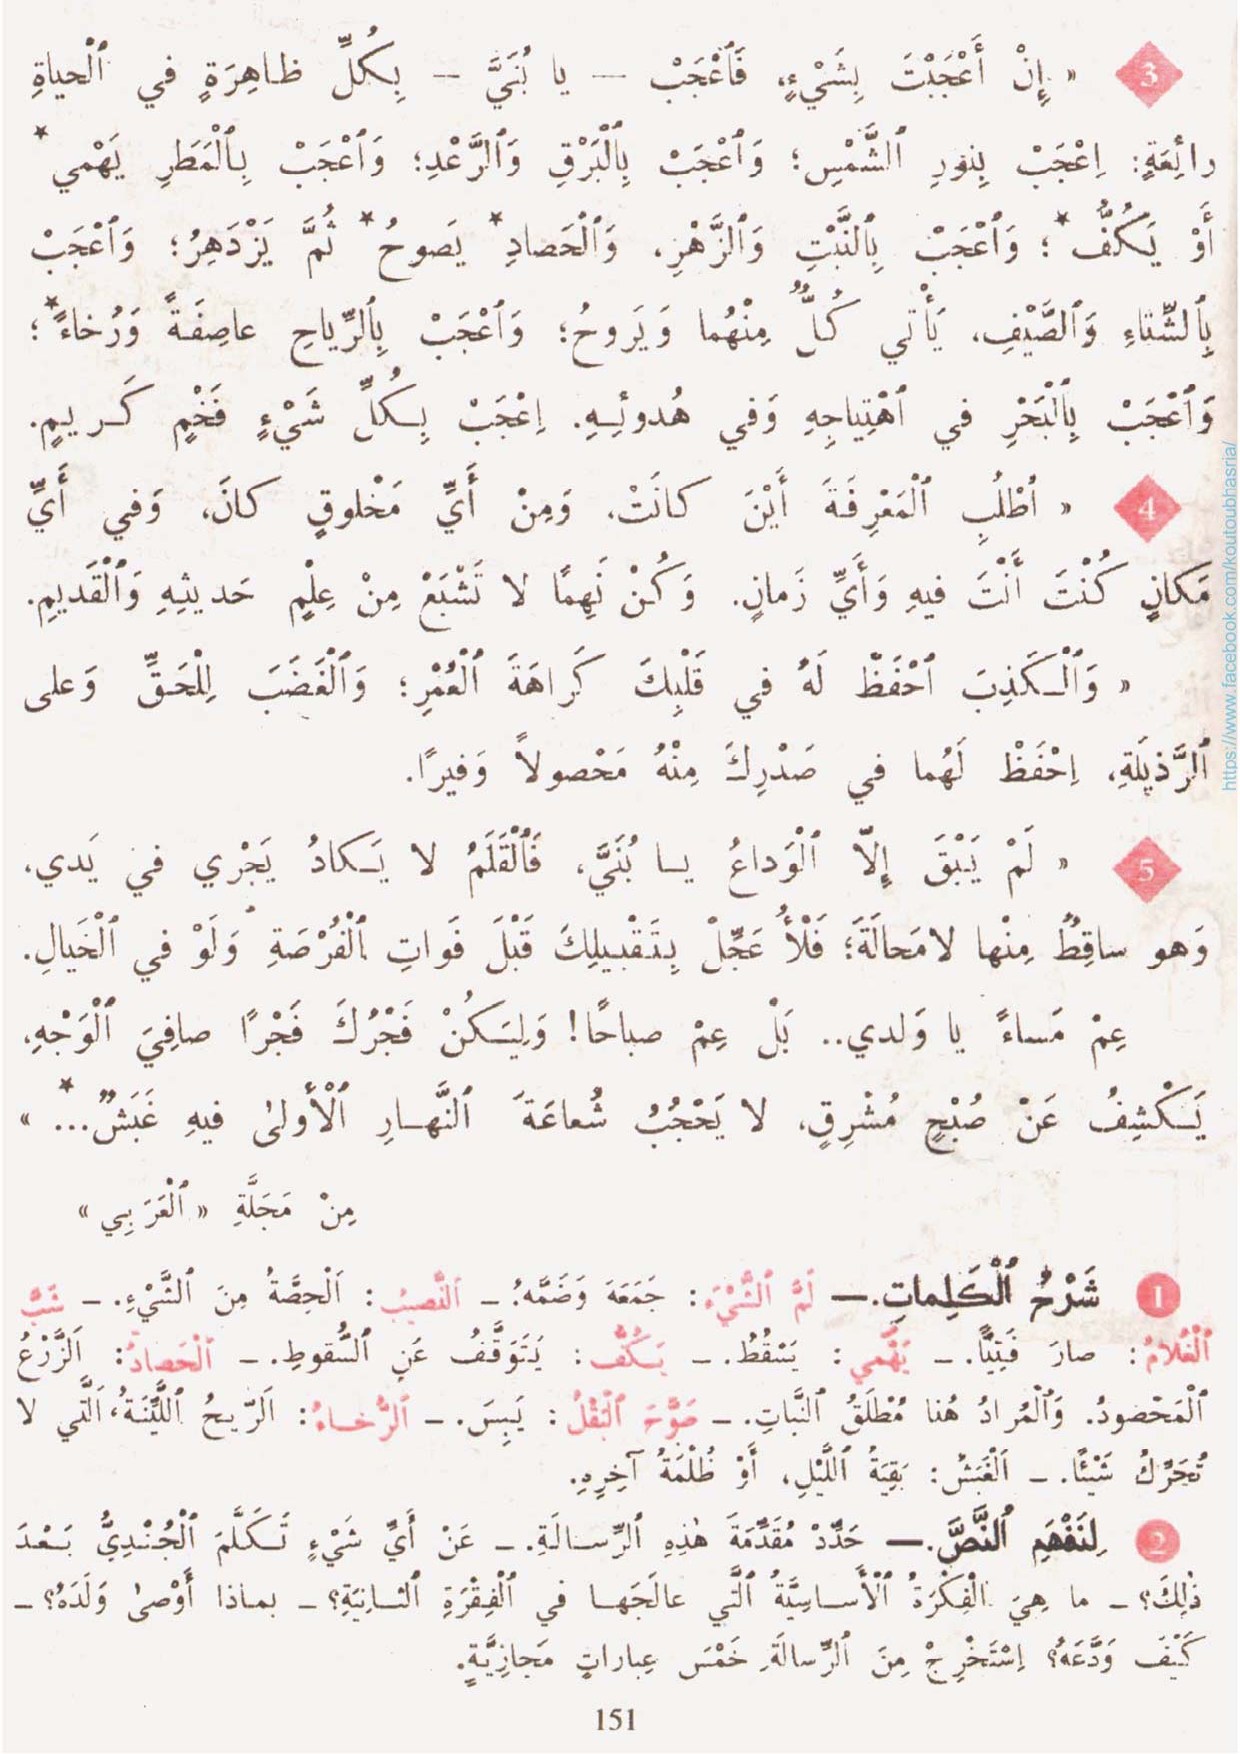 3 « إِنْ أَعْجَبْتَ بِشَيْءٍ، فَٱعْجَبْ — يا بُنَيَّ — بِكُلِّ ظاهِرَةٍ في ٱلْحياةِ
رائِعَةٍ: اِعْجَبْ بِنورِ ٱلشَّمْسِ؛ وَٱعْجَبْ بِٱلْبَرْقِ وَٱلرَّعْدِ؛ وَٱعْجَبْ بِٱلْمَطَرِ يَهْمي*
أَوْ يَكُفُّ*؛ وَٱعْجَبْ بِٱلنَّبْتِ وَٱلزَّهْرِ، وَٱلْحَصادِ* يَصوحُ* ثُمَّ يَزْدَهِرُ؛ وَٱعْجَبْ
بِٱلشِّتاءِ وَٱلصَّيْفِ، يَأْتي كُلٌّ مِنْهُما وَيَروحُ؛ وَٱعْجَبْ بِٱلرِّياحِ عاصِفَةً وَرُخاءً*؛
وَٱعْجَبْ بِٱلْبَحْرِ في ٱهْتِياجِهِ وَفي هُدوئِهِ. اِعْجَبْ بِكُلِّ شَيْءٍ فَخْمٍ كَريمٍ.
4 « اُطْلُبِ ٱلْمَعْرِفَةَ أَيْنَ كانَتْ، وَمِنْ أَيِّ مَخْلوقٍ كانَ، وَفي أَيِّ
مَكانٍ كُنْتَ أَنْتَ فيهِ وَأَيِّ زَمانٍ. وَكُنْ نَهِمًا لا تَشْبَعْ مِنْ عِلْمٍ حَديثِهِ وَٱلْقَديمِ.
« وَٱلْكَذِبَ ٱحْفَظْ لَهُ في قَلْبِكَ كَراهَةَ ٱلْعُمْرِ؛ وَٱلْغَضَبَ لِلْحَقِّ وَعلى
ٱلرَّذيلَةِ، اِحْفَظْ لَهُما في صَدْرِكَ مِنْهُ مَحْصولاً وَفيرًا.
5 « لَمْ يَبْقَ إِلاّ ٱلْوَداعُ يا بُنَيَّ، فَٱلْقَلَمُ لا يَكادُ يَجْري في يَدي،
وَهو ساقِطٌ مِنْها لامَحالَةَ؛ فَلْأُعَجِّلْ بِتَقْبيلِكَ قَبْلَ فَواتِ ٱلْفُرْصَةِ وَلَوْ في ٱلْخَيالِ.
عِمْ مَساءً يا وَلدي.. بَلْ عِمْ صباحًا! وَلِيَكُنْ فَجْرُكَ فَجْرًا صافِيَ ٱلْوَجْهِ،
يَكْشِفُ عَنْ صُبْحٍ مُشْرِقٍ، لا يَحْجُبُ شُعاعَةَ ٱلنَّهارِ ٱلْأولىٰ فيهِ غَبَشٌ*... »
مِنْ مَجَلَّةِ « ٱلْعَرَبي»
1 شَرْحُ ٱلْكَلِماتِ.— لَمَّ ٱلشَّيْءَ: جَمَعَهَ وَضَمَّهُ.— اَلنَّصيبُ: اَلْحِصَّةُ مِنَ ٱلشَّيْءِ.— شَبَّ
ٱلْغُلامُ: صارَ فَتِيًّا.— يَهْمي: يَسْقُطُ.— يَكُفُّ: يَتَوَقَّفُ عَنِ ٱلسُّقوطِ.— اَلْحَصادُ: اَلزَّرْعُ
ٱلْمَحْصودُ. وَٱلْمُرادُ هُنا مُطْلَقُ ٱلنَّباتِ.— صَوَّحَ ٱلْبَقْلُ: يَبِسَ.— اَلرُّخاءُ: اَلرّيحُ ٱللَّيِّنَةُ، اَلَّتي لا
تُحَرِّكُ شَيْئًا.— اَلْغَبَشُ: بَقِيَةُ ٱللَّيْلِ، أَوْ ظُلْمَةُ آخِرِهِ.
2 لِنَفْهَمِ ٱلنَّصَّ.— حَدِّدْ مُقَدِّمَةَ هٰذِهِ ٱلرِّسالَةِ.— عَنْ أَيِّ شَيْءٍ تَكَلَّمَ ٱلْجُنْدِيُّ بَعْدَ
ذٰلِكَ؟ — ما هِيَ ٱلْفِكْرَةُ ٱلْأَساسِيَّةُ ٱلَّتي عالَجَها في ٱلْفِقْرَةِ ٱلثانِيَةِ؟ — بماذا أَوْصىٰ وَلَدَهُ؟ —
كَيْفَ وَدَّعَهُ؟ اِسْتَخْرِجْ مِنَ ٱلرِّسالَةِ خَمْسَ عِباراتٍ مَجازِيَّةٍ.
151
https://www.facebook.com/koutoubhasria/